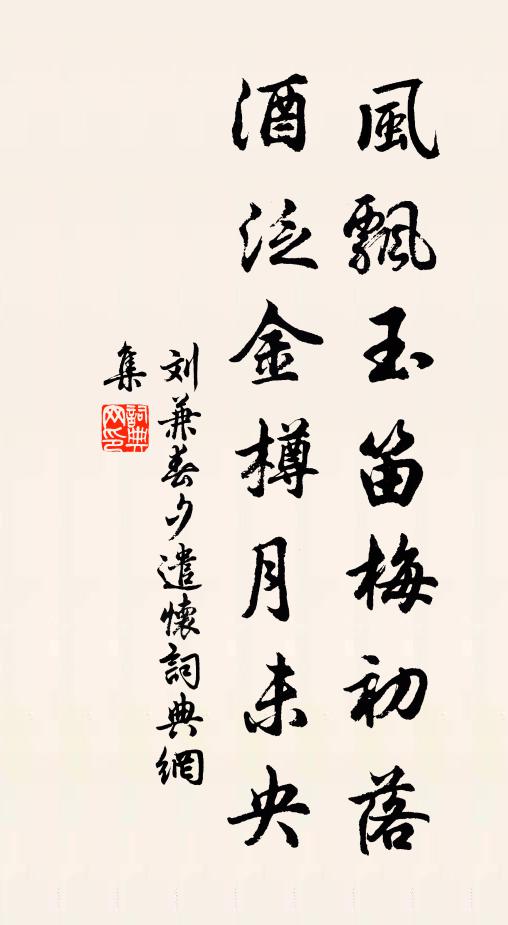 風飄玉笛梅初落
酒泛金樽月未央
刘兼春夕遣懷詞典網
集
詞典
网印